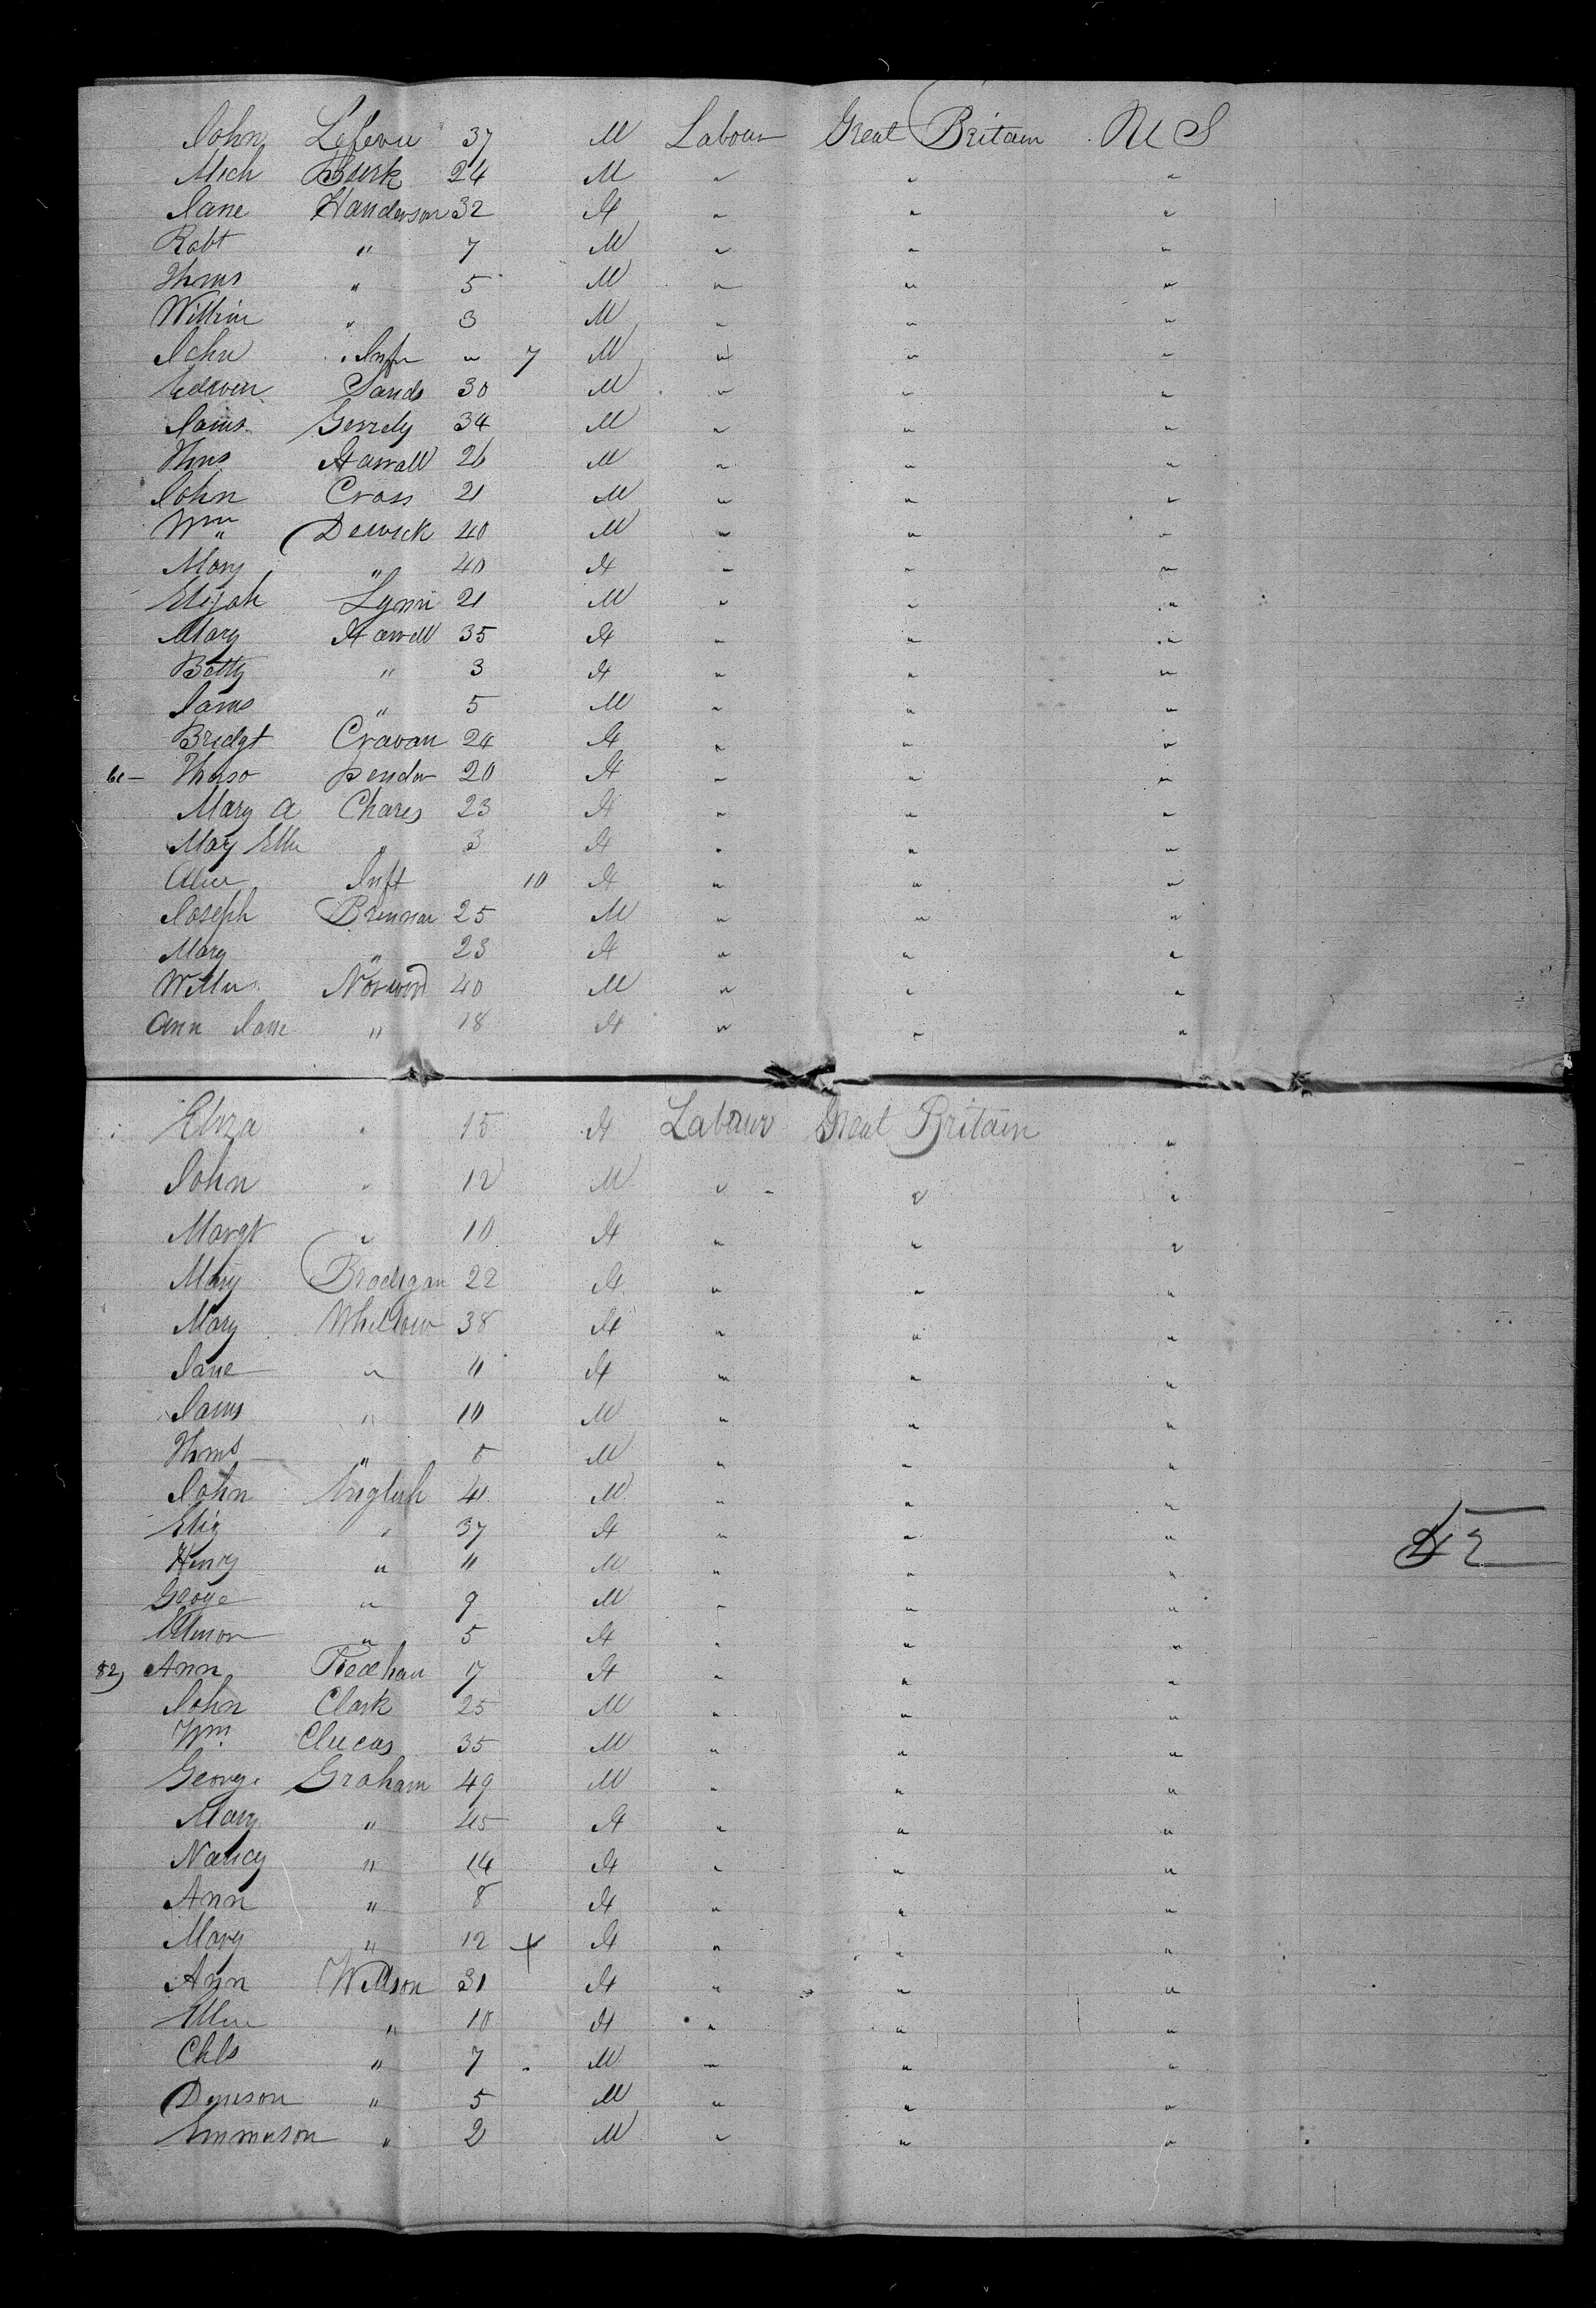 John Lefevre 37 M Labour Great Britain U S
Mich Burk 24 M " " "
Jane Handerson 32 F " " "
Robt " 7 M " " "
Thms " 5 M " " "
William " 3 M " " "
John " Inf " 7 M " " "
Edwin Sands 30 M " " "
Jams 34 M " " "
Thms 26 M " " "
John Cross 21 M " " "
Wm Derrick 40 M " " "
Mary " 40 F " " "
Elijah Lynn 21 M " " "
Mary 35 F " " "
Betty " 3 F " " "
Jams " 5 M " " "
Bridgt Cravan 24 F " " "
20 F " " "
Mary A Chares 23 F " " "
May Ellen " 3 F " " "
Alice Inft 10 F " " "
Joseph Brennan 25 M " " "
Mary " 23 F " " "
Norwood 40 M " " "
Ann Jane " 18 F " " "
Eliza " 15 F Labour Great Britain "
John " 12 M " " "
Margt " 10 F " " "
Mary Bradigan 22 F " " "
Mary 38 F " " "
Jane " 11 F " " "
Jams " 10 M " " "
Thms " 5 M " " "
John English 41 M " " "
Eliz " 37 F " " "
Henry " 11 M " " "
George " 9 M " " "
" 5 F " " "
82) Ann 17 F " " "
John Clark 25 M " " "
Wm Clucas 35 M " " "
George Graham 49 M " " "
Mary " 45 F " " "
Nancy " 14 F " " "
Ann " 8 F " " "
Mary " 12 + F " " "
Ann Willson 31 F " " "
Ellen " 10 F " " "
Chls " 7 M " " "
" 5 M " " "
Emmerson " 2 M " " "